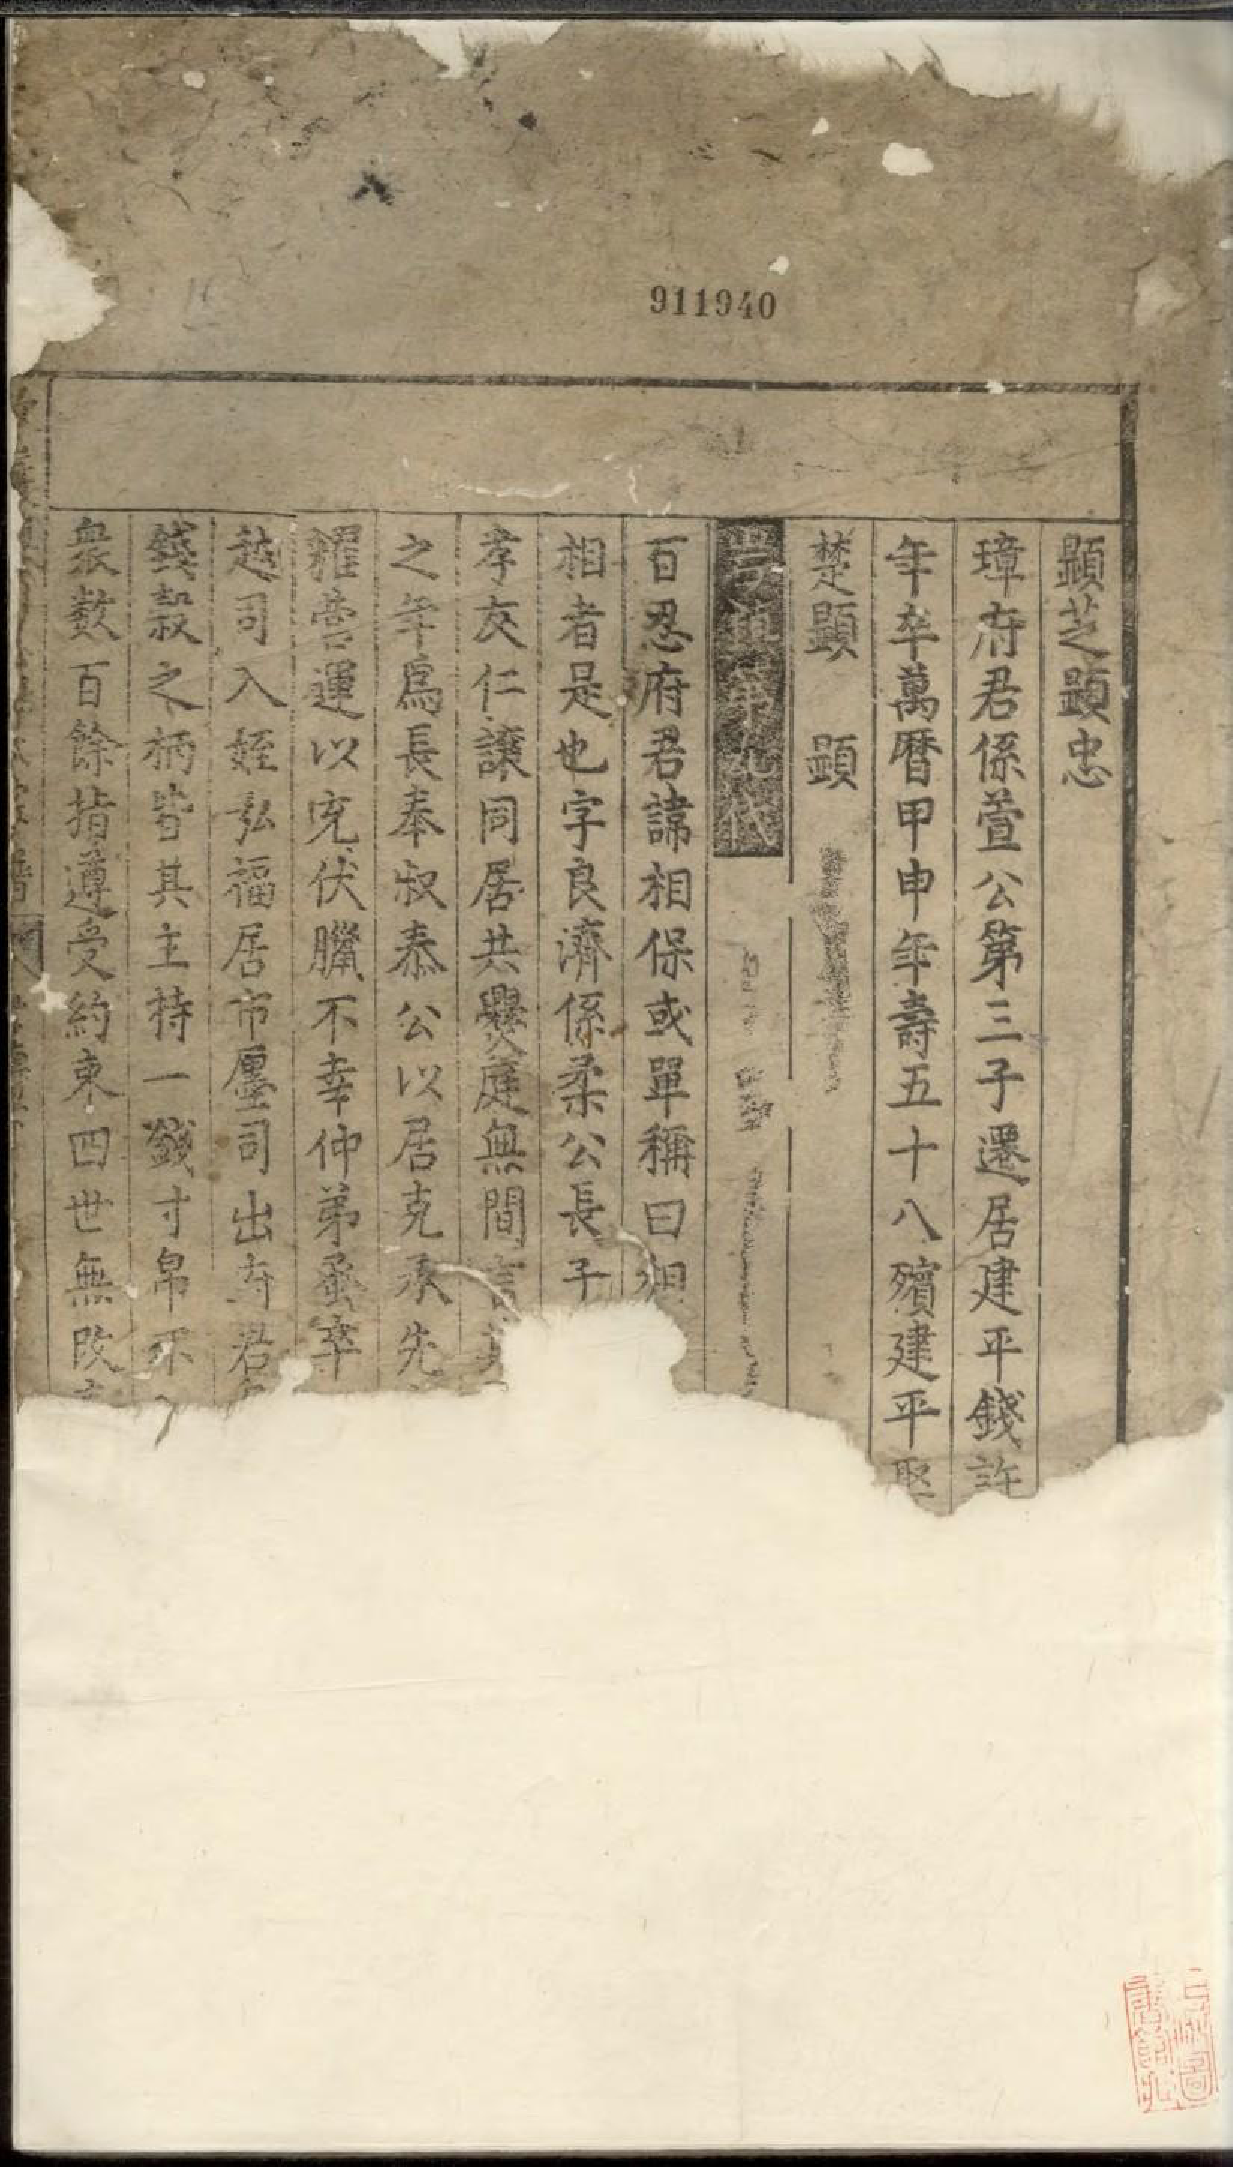 911940
顯芝顯忠
璋府君係萱公第三子還居建平錢許
年卒萬曆甲申年壽五十八殯建平
楚顯　顯
百忍府君諱相保或單稱曰相
相者是也字良濟係柔公長子
孝友仁讓同居共爨庭無間言
之年爲長奉叔泰公以居克承先
糴營運以充伏臘不幸仲弟蚤卒
越司入姪弘福居市廛司出寿君
錢穀之柄皆其主持一錢寸帛不
衆數百餘指遵受約束四世無改